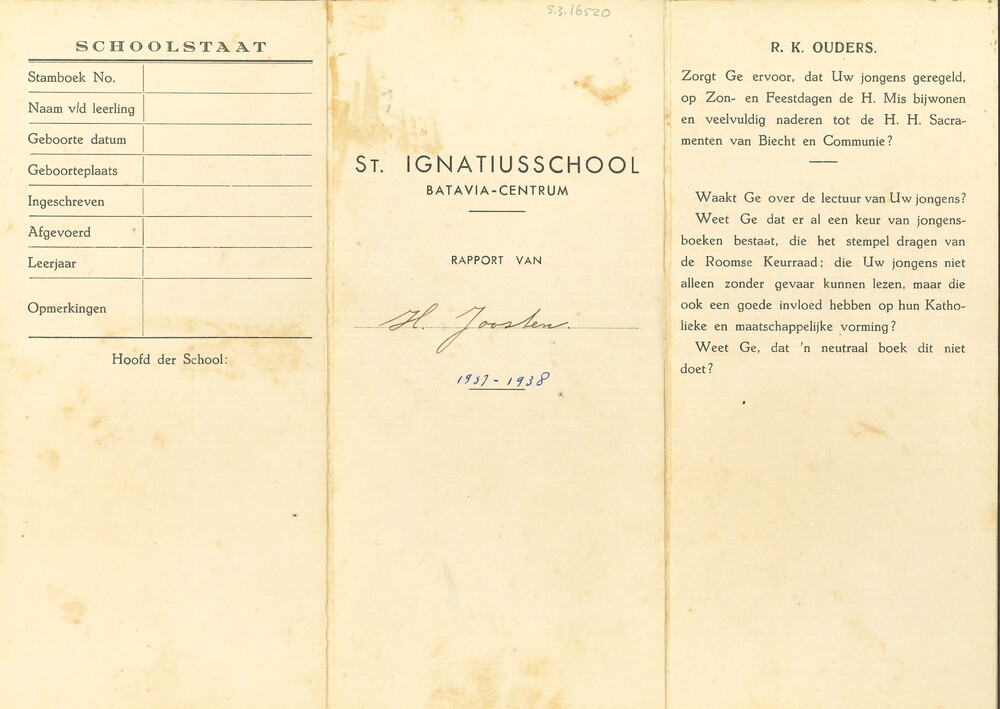 5.3.16520
SCHOOLSTAAT
Stamboek No.
Naam v/d leerling
Geboorte datum
Geboorteplaats
Ingeschreven
Afgevoerd
Leerjaar
Opmerkingen
Hoofd der School:
ST. IGNATIUSSCHOOL
BATAVIA-CENTRUM
RAPPORT VAN
H. Joosten.
1937-1938
R. K. OUDERS.
Zorgt Ge ervoor, dat Uw jongens geregeld,
op Zon- en Feestdagen de H. Mis bijwonen
en veelvuldig naderen tot de H. H. Sacra-
menten van Biecht en Communie?
Waakt Ge over de lectuur van Uw jongens?
Weet Ge dat er al een keur van jongens-
boeken bestaat, die het stempel dragen van
de Roomse Keurraad; die Uw jongens niet
alleen zonder gevaar kunnen lezen, maar die
ook een goede invloed hebben op hun Katho-
lieke en maatschappelijke vorming?
Weet Ge, dat 'n neutraal boek dit niet
doet?